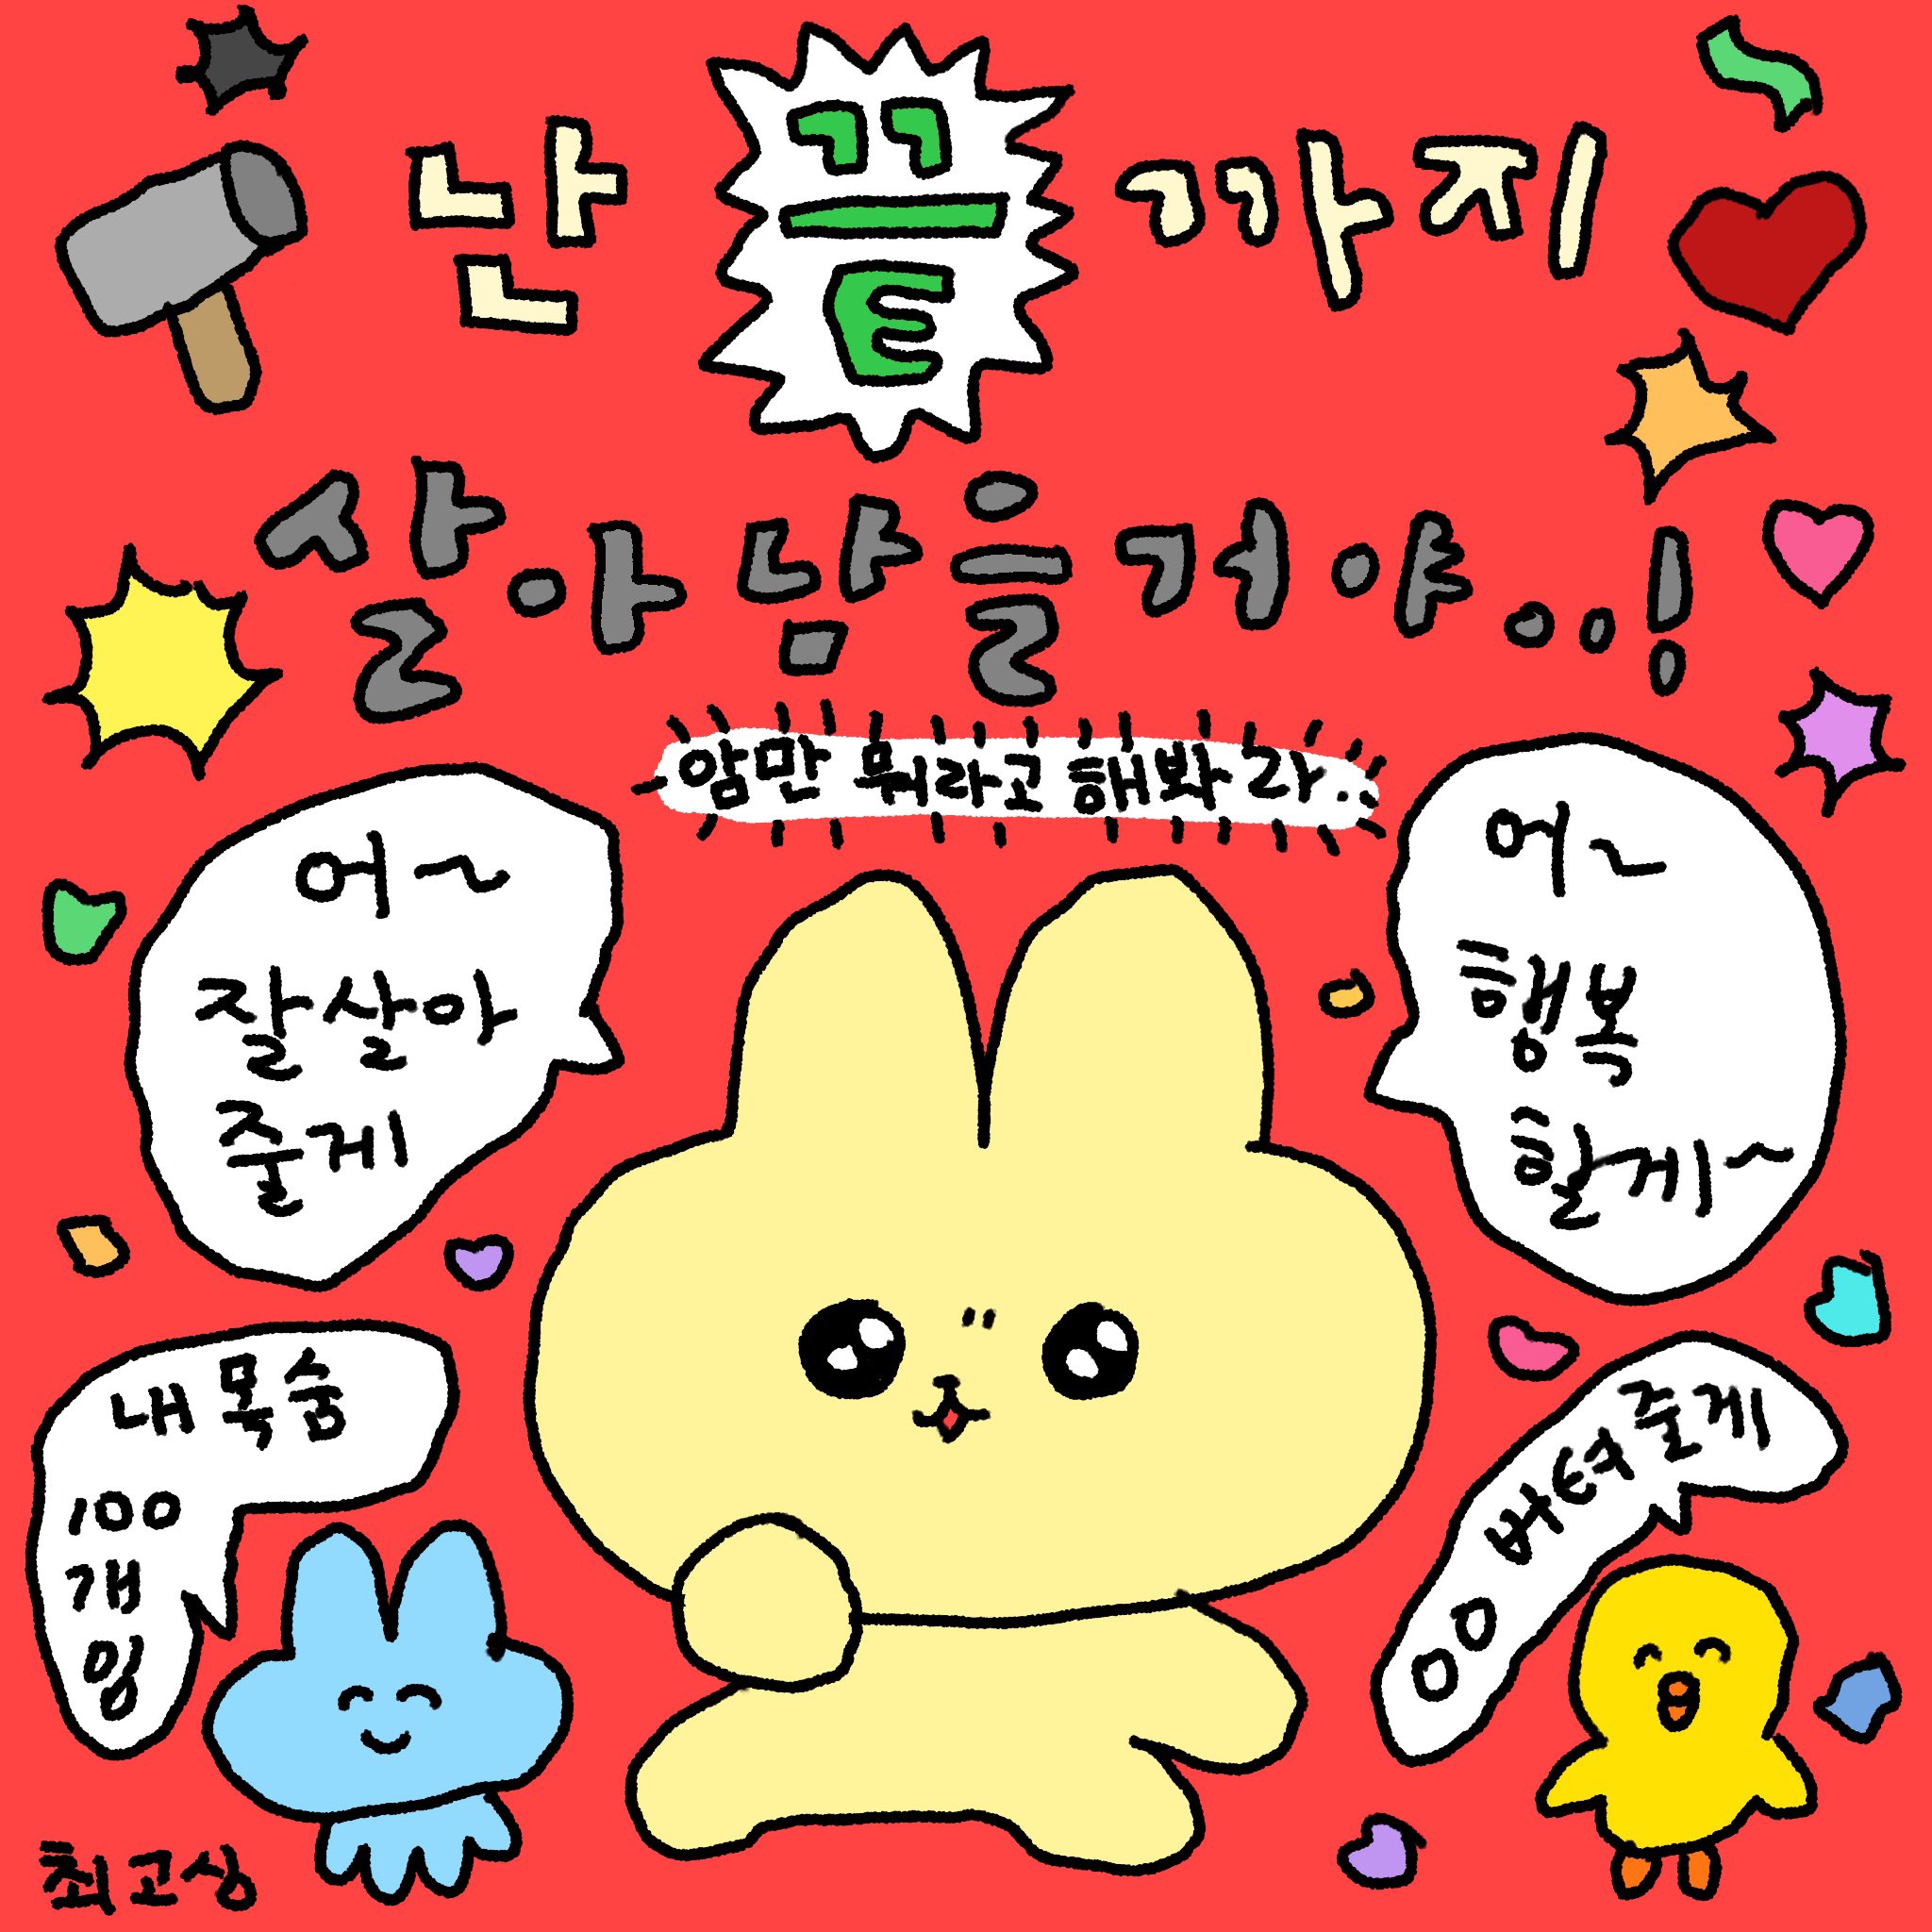 난 끝까지
살아남을거야..!
암만 뭐라고 해봐라..
어~
잘살아
줄게
어~
행복
할게~
내 목숨
100
개
임
버텨줄게
ㅇㅇ
최고심